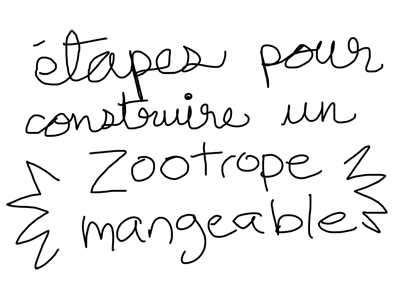 étapes pour
construire un
zootrope
mangeable